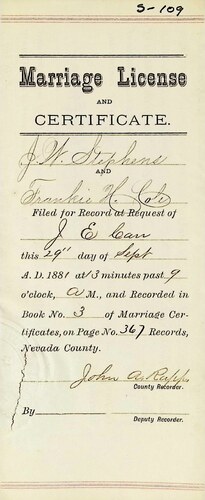 S-109
Marriage License
AND
CERTIFICATE.
J. W. Stephens
AND
Frankie H. Cole
Filed for Record at Request of
J E Carr
this 29" day of Sept
A. D. 1881 at 13 minutes past 9
o'clock, A M., and Recorded in
Book No. 3 of Marriage Cer-
tificates, on Page No. 367 Records,
Nevada County.
John A. Rapp
County Recorder.
By
Deputy Recorder.